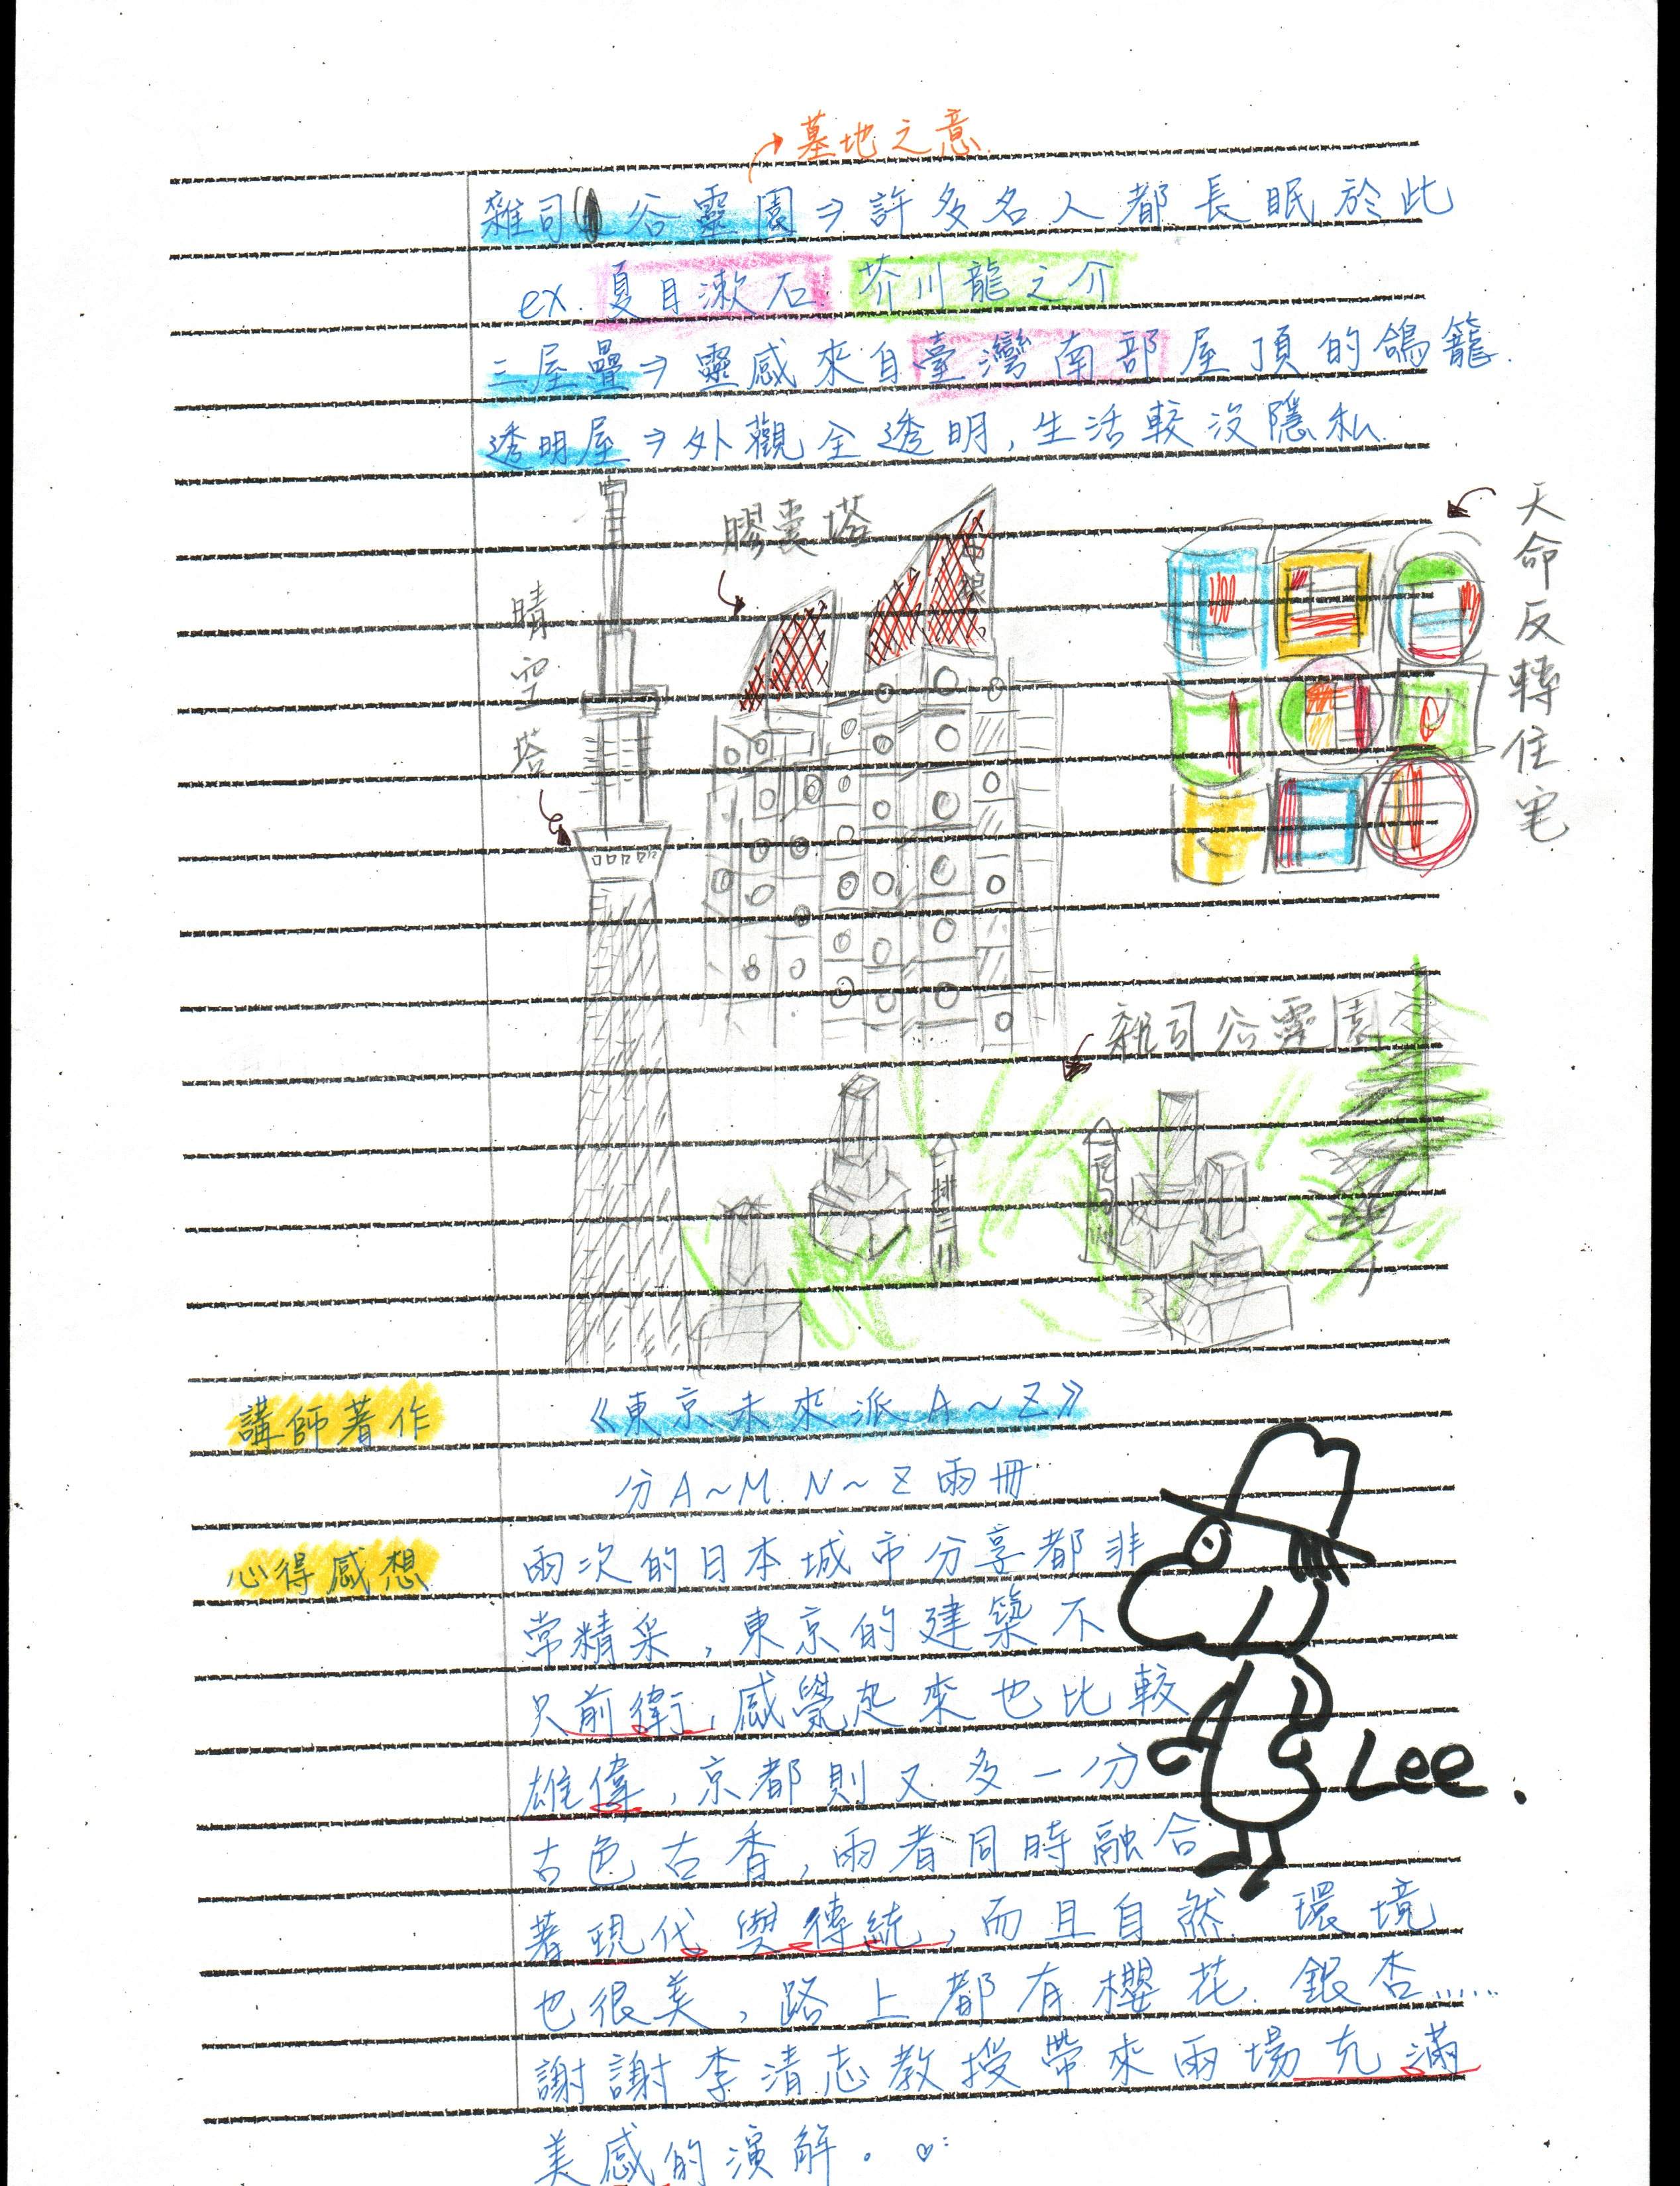 墓地之意
雜司谷靈園⇒許多名人都長眠於此
ex. 夏目漱石 芥川龍之介
三屋疊⇒靈感來自臺灣南部屋頂的鴿籠.
透明屋⇒外觀全透明,生活較沒隱私.
膠囊塔
天命反轉住宅
晴空塔
雜司谷靈園
講師著作
《東京未來派A~Z》
分A~M. N~Z兩冊.
心得感想
兩次的日本城市分享都非
常精采,東京的建築不
只前衛,感覺起來也比較
雄偉,京都則又多一分
古色古香,兩者同時融合
著現代與傳統,而且自然環境
也很美,路上都有櫻花.銀杏......
謝謝李清志教授帶來兩場充滿
美感的演解。
Lee.